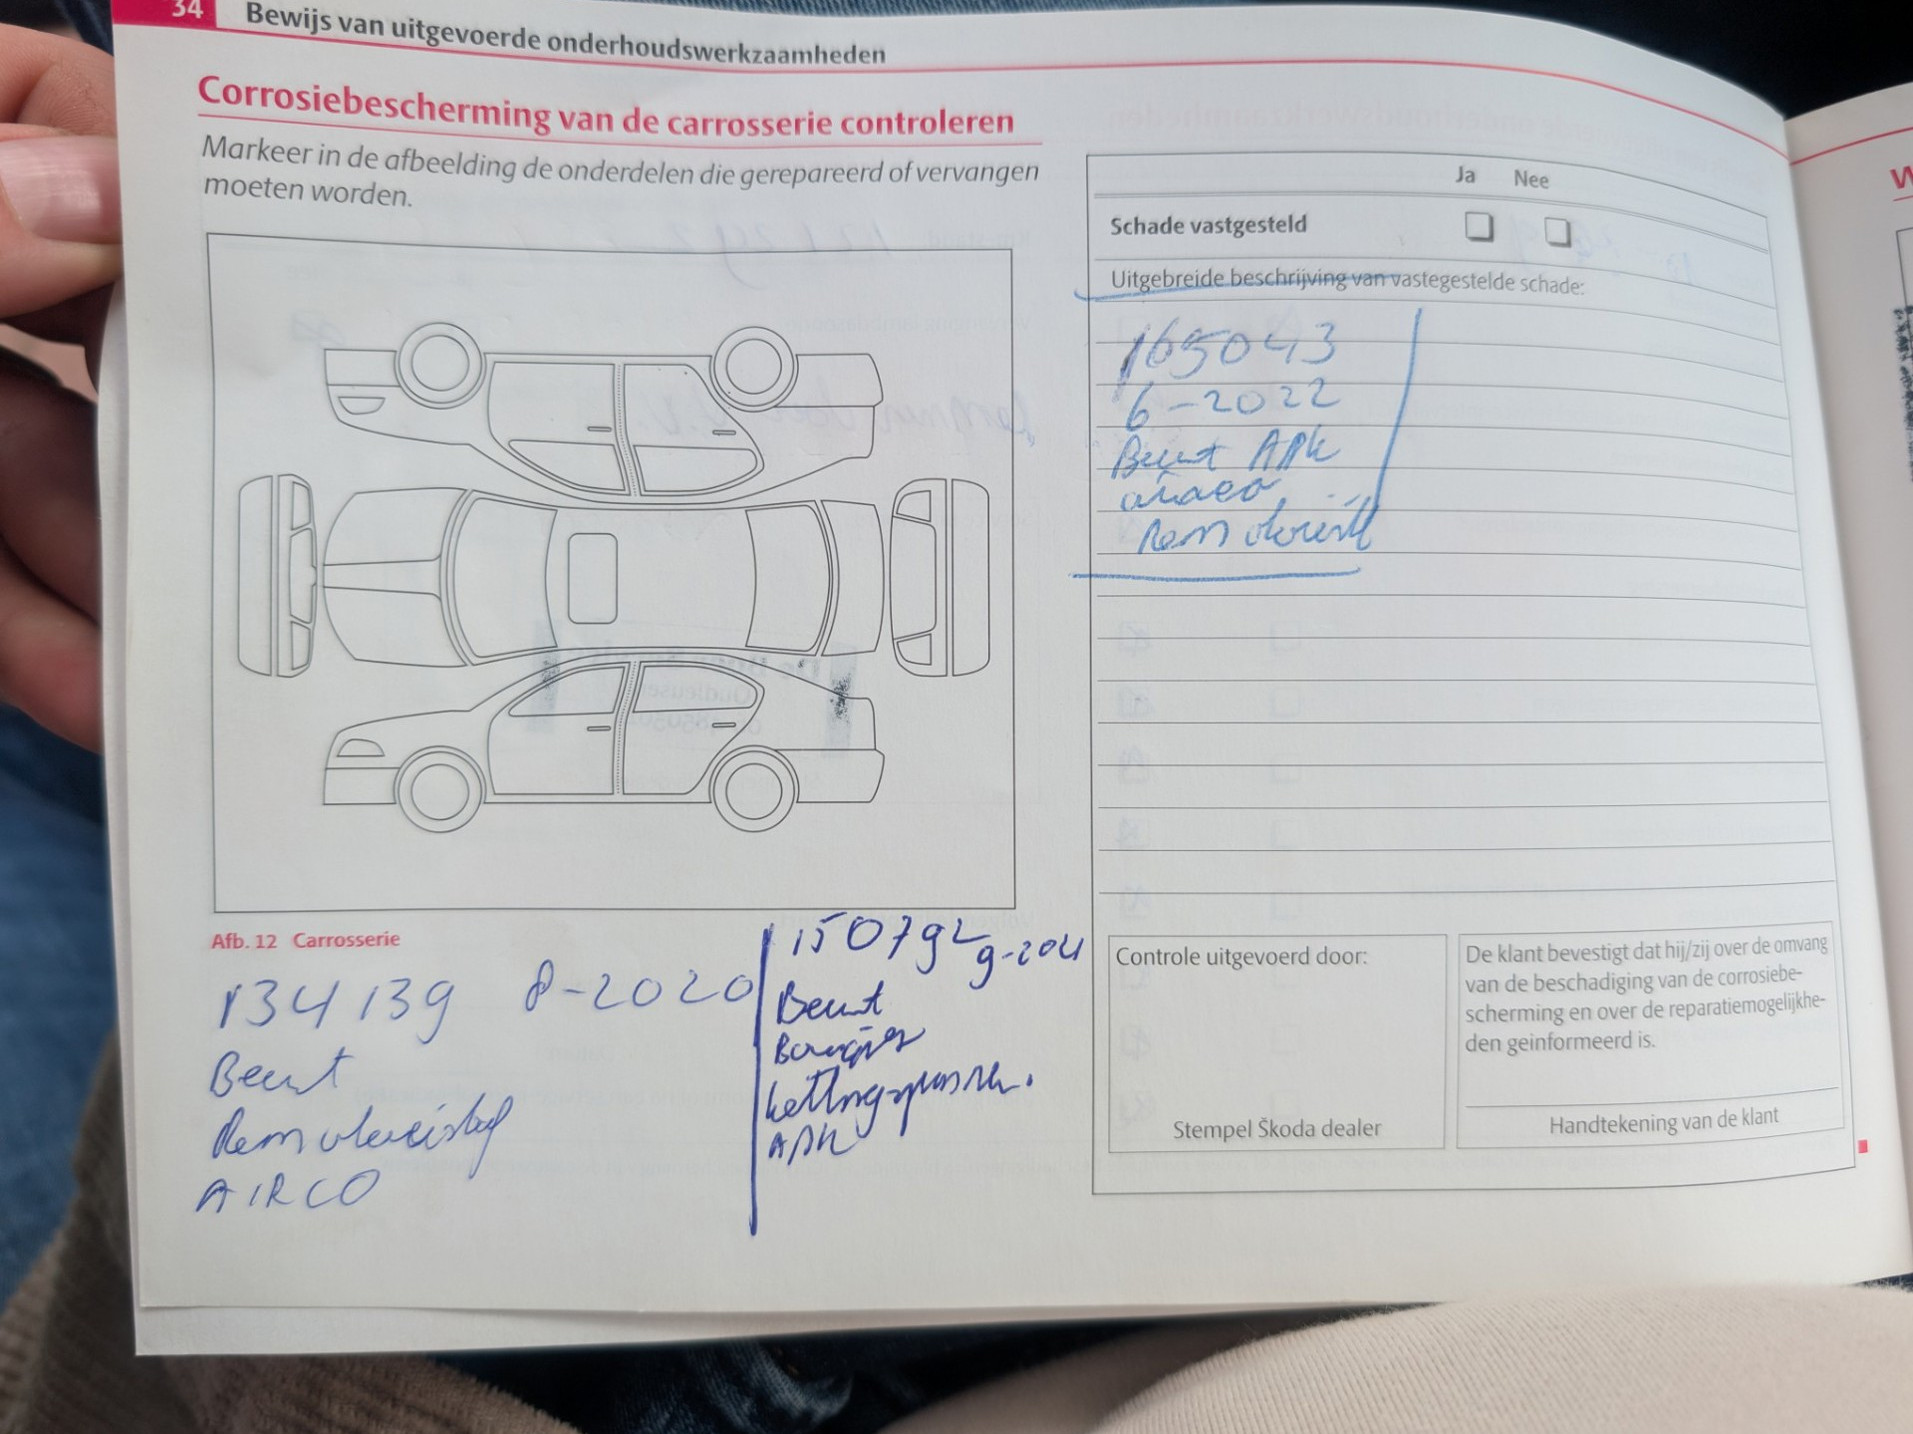 34 Bewijs van uitgevoerde onderhoudswerkzaamheden
Corrosiebescherming van de carrosserie controleren
Markeer in de afbeelding de onderdelen die gerepareerd of vervangen
moeten worden.
Afb. 12 Carrosserie
134139 8-2020
Beurt
Remvloeistof
AIRCO
150792
9-2021
Beurt
Bougies
kettingspanner.
APK
Ja Nee
Schade vastgesteld
Uitgebreide beschrijving van vastegestelde schade:
165043
6-2022
Beurt APK
Remvloeist
Controle uitgevoerd door:
Stempel Škoda dealer
De klant bevestigt dat hij/zij over de omvang
van de beschadiging van de corrosiebe-
scherming en over de reparatiemogelijkhe-
den geinformeerd is.
Handtekening van de klant